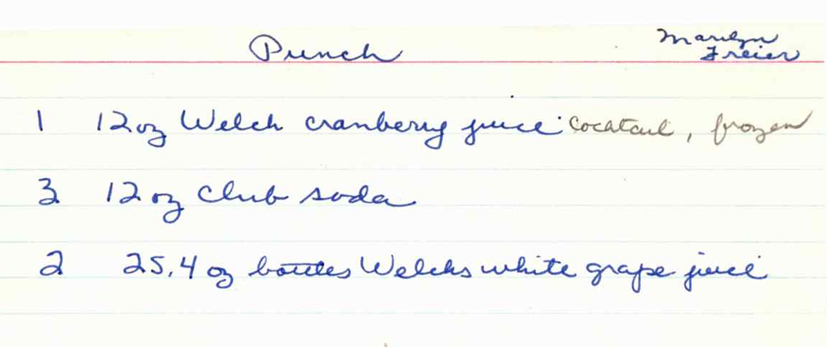 Punch
Marilyn
Freier
1 12 oz Welch cranberry juice cocktail, frozen
3 12 oz club soda
2 25.4 oz bottles Welchs white grape juice